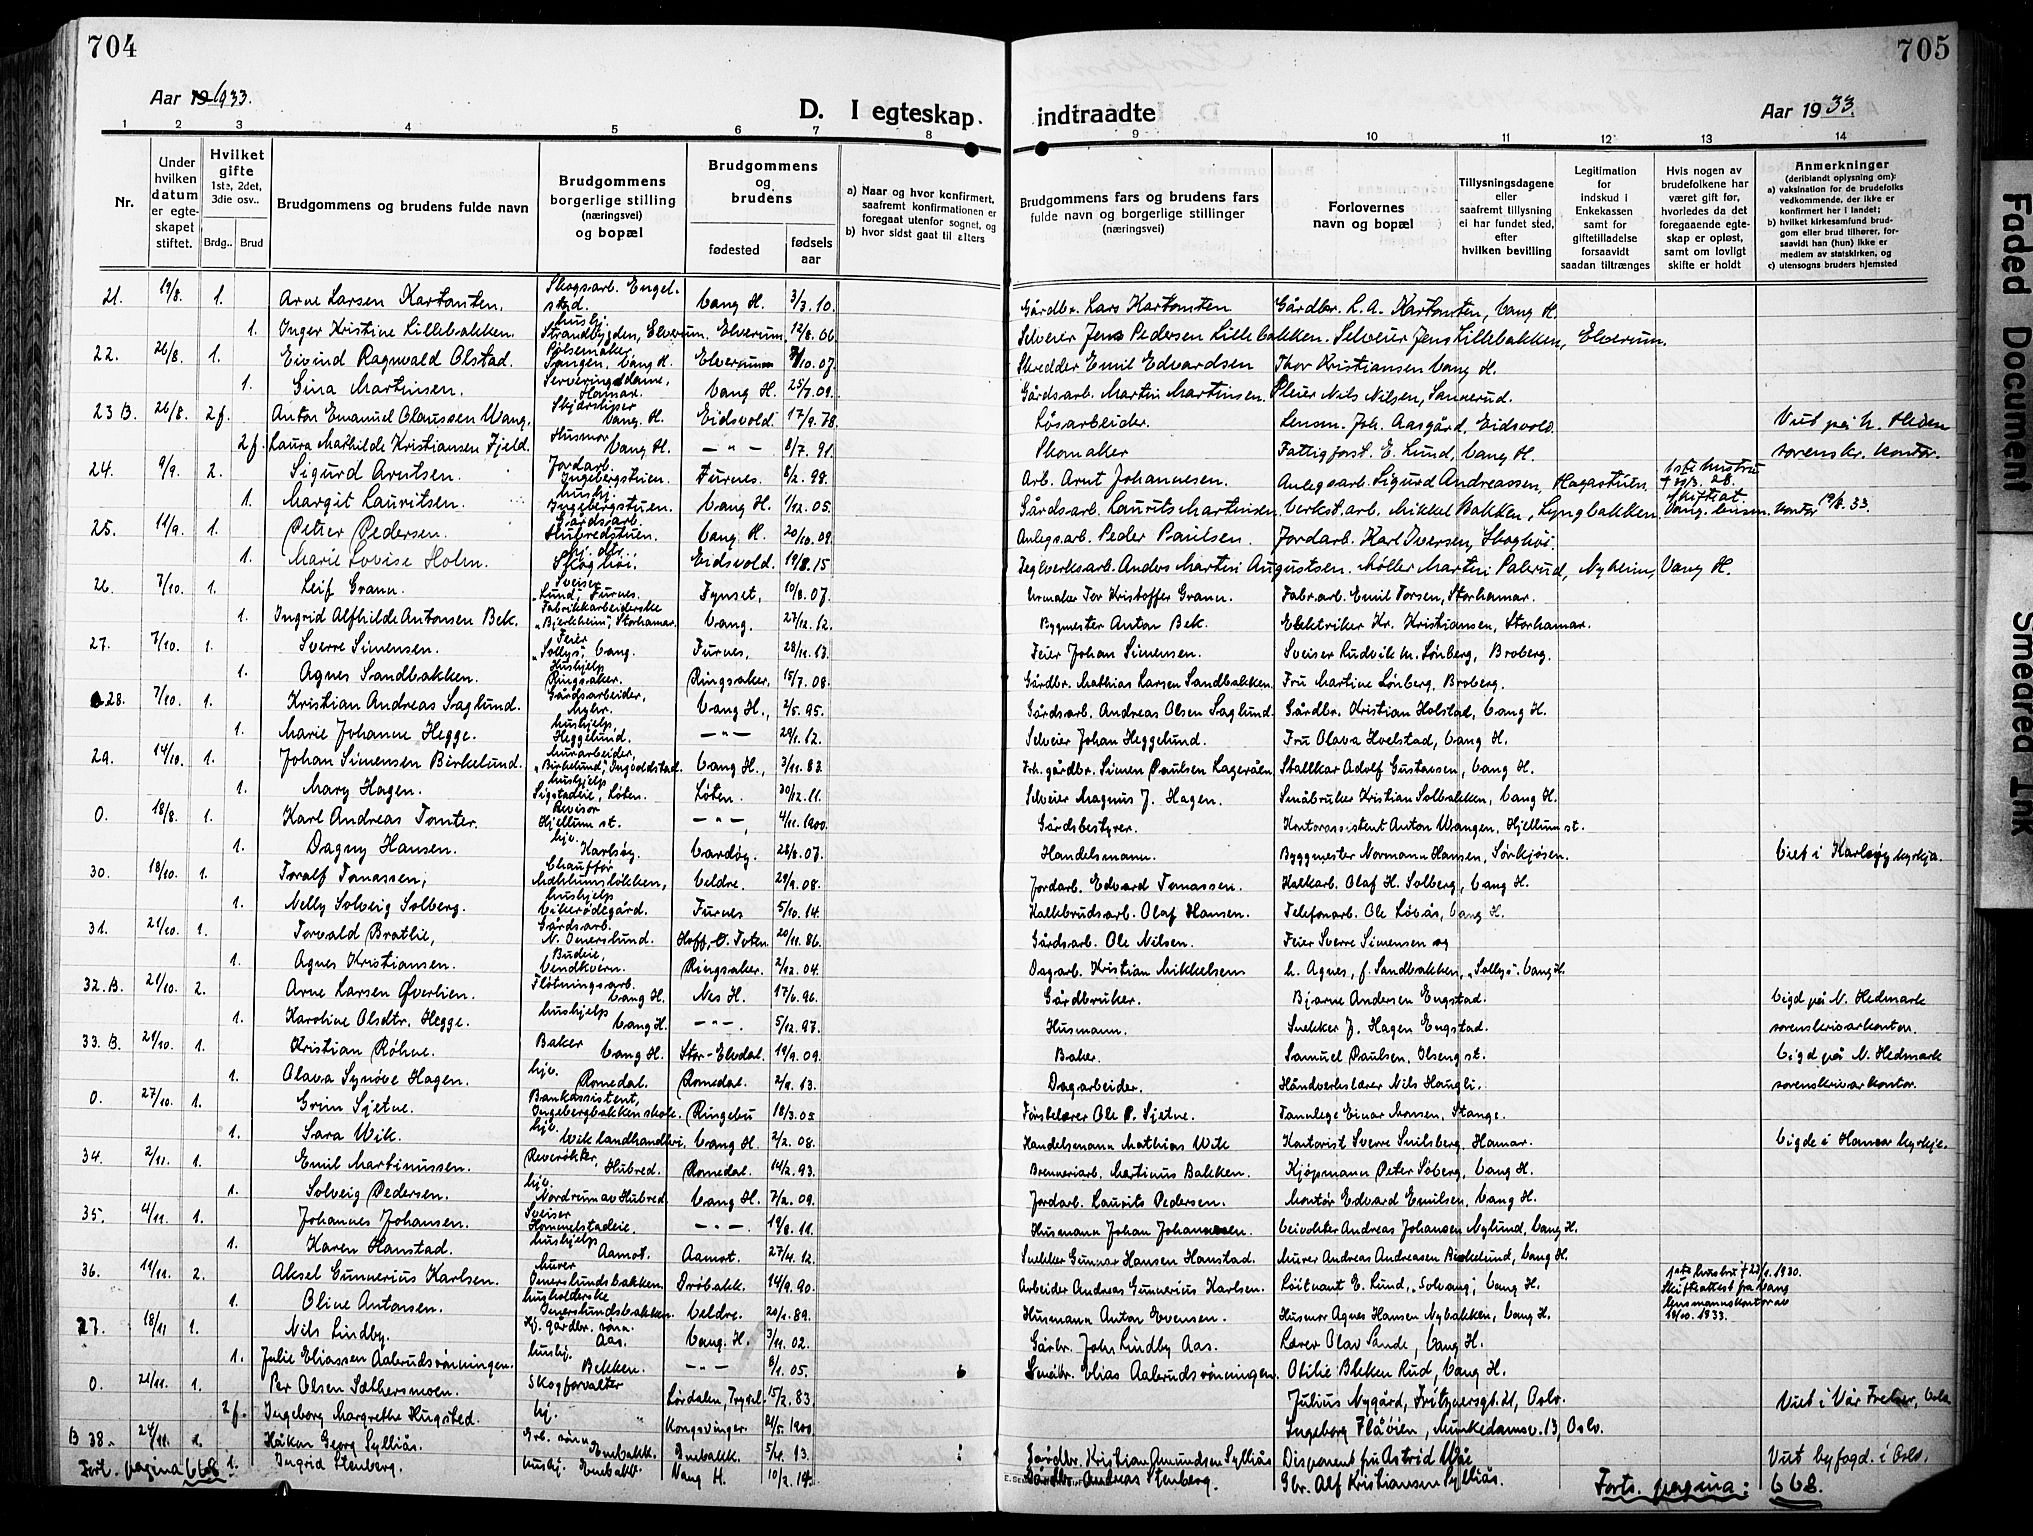 704
705
Aar 1933.
D. I egteskap indtraadte
Aar 1933.
1 2 3 4 5 6 7 8 9 10 11 12 13 14
Nr.
Under hvilken datum er egteskapet stiftet.
Hvilket gifte 1ste, 2det, 3die osv..
Brdg.. Brud
Brudgommens og brudens fulde navn
Brudgommens borgerlige stilling (næringsvei) og bopæl
Brudgommens og brudens
fødested
fødsels aar
a) Naar og hvor konfirmert, saafremt konfirmationen er foregaat utenfor sognet, og
b) hvor sidst gaat til alters
Brudgommens fars og brudens fars fulde navn og borgerlige stillinger (næringsvei)
Forlovernes navn og bopæl
Tillysningsdagene eller saafremt tillysning ei har fundet sted, efter hvilken bevilling
Legitimation for indskud i Enkekassen samt for giftetilladelse forsaavidt saadan tiltrænges
Hvis nogen av brudefolkene har været gift før, hvorledes da det foregaaende egteskap er opløst, samt om lovligt skifte er holdt
Anmerkninger (deriblandt oplysning om):
a) vaksination for de brudefolks vedkommende, der ikke er konfirmert her i landet;
b) hvilket kirkesamfund brudgom eller brud tilhører, forsaavidt han (hun) ikke er medlem av statskirken, og
c) utensogns bruders hjemsted
21. 19/8. 1. Arne Larsen Kartomten. Skogsarb. Engelstad. Vang H. 3/3. 10. Gårdbr. Lars Kartomten Gårdbr. L. A. Kartomten, Vang H.
1. Inger Kristine Lillebakken. Hushj. Strandbygden, Elverum. Elverum. 12/8. 06 Selveier Jens Pedersen Lillebakken. Selveier Jens Lillebakken, Elverum.
22. 26/8. 1. Eivind Ragnvald Olstad. Pølsemaker Vang H. Elverum 10. 07. Skredder Emil Edvardsen Thor Kristiansen Vang H.
1. Gina Martinsen. Serveringsdame, Hamar. Vang H. 25/7. 09. Gårdsarb. Martin Martinsen. Nils Nilsen, Sannerud.
23 B. 26/8. 2 f. Anton Emanuel Olaussen Wang. Vang. H. Eidsvold. 17/9. 78. Løsarbeider. Lensm. Joh. Aasgård, Eidsvold. Viet på N. Heden
2 f. Laura Mathilde Kristiansen Fjeld. Husmor Vang H. — " — 8/7. 91. Skomaker Fattigforst. E. Lund, Vang H. sorenskr. kontor.
24. 9/9. 2. Sigurd Arntsen. Jordarb. Ingebergstuen. Furnes. 8/2. 98. Arb. Arnt Johannesen. Anlegsarb. Sigurd Andreassen, Hagastuen. 1ste hustru
1. Margit Lauritsen. hushj. Ingebergstuen. Vang H. 1/12. 05. Gårdsarb. Laurits Martinsen. Verkst. arb. Mikkel Bakken, Lyngbakken. Skifteat. Vang lensm. kontor 19/8. 33.
25. 11/9. 1. Petter Pedersen. Gårdsarb. Hubredstuen. Vang H. 20/10. 09. Anlegsarb. Peder Paulsen. Jordarb. Karl Iversen, Skoghøi.
1. Marie Lovise Holm. Skoghøi. Eidsvold. 19/8. 15 Teglverksarb. Anders Martin Augustsen. Møller Martin Palerud, Nyheim, Vang H.
26. 7/10. 1. Leif Grann. Sveiser "Lund", Furnes. Tynset, 10/8. 07. Urmaker Tor Kristoffer Grann. Fabr.arb. Emil Torsen, Storhamar.
1. Ingrid Alfhilde Antonsen Bek. Fabrikkarbeiderske "Bjerkheim", Storhamar. Vang. 27/12. 12. Bygmester Anton Bek. Elektriker Kr. Kristiansen, Storhamar.
27. 7/10. 1. Sverre Simensen. Feier "Sollys", Vang. Furnes, 28/11. 13. Feier Johan Simensen. Sveiser Ludvik M. Lønberg, Broberg.
1. Agnes Sandbakken. Hushjelp Ringsaker. Ringsaker, 15/7. 08. Gårdbr. Mathias Larsen Sandbakken. Fru Martine Lønberg, Broberg.
28. 7/10. 1. Kristian Andreas Saglund. Gårdsarbeider, Vang H., 2/5. 95. Gårdsarb. Andreas Olsen Saglund. Gårdbr. Kristian Holstad, Vang H.
1. Marie Johanne Hegge. hushjelp, Heggelund. — " — 29/1. 12. Selveier Johan Heggelund. Fru Olava Hoelstad, Vang H.
29. 14/10. 1. Johan Simensen Birkelund. Murarbeider, "Birkelund", Ingvoldstad. Vang H., 3/11. 83. Frh. gårdbr. Simen Paulsen Lageråen Stallkar Adolf Gustavsen, Vang H.
1. Mary Hagen. hushjelp Sigstadeie, Løten. Løten. 30/12. 11. Selveier Magnus J. Hagen. Småbruker Kristian Solbakken, Vang H.
0. 18/8. 1. Karl Andreas Tomter. Revisor Hjellum st. — " — 4/11. 1900. Gårdsbestyrer. Kontorassistent Anton Wangen, Hjellum st.
1. Dagny Hansen. hjv. Karlsøy. Vardøy. 28/8. 07. Handelsmann. Byggmester Normann Hansen, Sørkjosen. Viet i Karlsøy kyrkje.
30. 18/10. 1. Toralf Tomassen, Chauffør Mæhlumsløkken, Veldre. 29/9. 08. Jordarb. Edvard Tomassen. Kalkarb. Olaf H. Solberg, Vang H.
1. Nelly Solveig Solberg. hushjelp Vikerødegård. Furnes 5/10. 14. Kalkbrudsarb. Olaf Hansen. Telefonarb. Ole Løbås, Vang H.
31. 21/10. 1. Torvald Bratlie, Gårdsarb. N. Imerslund. Hoff, Ø. Toten 20/11. 86. Gårdsarb. Ole Nilsen. Feier Sverre Simensen og
1. Agnes Kristiansen. Budeie, Vendkvern. Ringsaker. 2/12. 04. Dagarb. Kristian Mikkelsen h. Agnes, f. Sandbakken, "Sollys". Vang H.
32. B. 21/10. 2. Arne Larsen Øverlien. Fløtningsarb. Vang H. Nes H. 17/6. 96. Gårdbruker. Bjarne Andersen Engstad. Vigd på N. Hedmark
1. Karoline Olsdtr. Hegge. hushjelp Vang H. — " — 5/12. 97. Husmann. Snekker J. Hagen Engstad. sorenskrivarkontor.
33. B. 21/10. 1. Kristian Røhne. Baker Vang H. Stor-Elvdal. 19/9. 09. Baker. Samuel Paulsen, Ilseng st. Vigd på N. Hedmark
1. Olava Synøve Hagen. hjv. Romedal. Romedal. 2/9. 13. Dagarbeider. Håndverkslærer Nils Haugli. sorenskrivarkontor.
0. 27/10. 1. Grim Sjetne. Bankassistent, Ingebergbakken skole. Ringebu 18/3. 05 Førstelærer Ole P. Sjetne. Tannlege Einar Monsen, Stange.
1. Sara Wik. hjv. Wik landhandleri. Vang H. 2/2. 08. Handelsmann Mathias Wik Kontorist Sverre Smilsberg, Hamar. Vigde i Hamar kyrkje.
34. 2/11. 1. Emil Martinussen. Revrøkter, Hubred. Romedal. 14/2. 93. Brenneriarb. Martinus Bakken. Kjøpmann Peter Søberg, Vang H.
1. Solveig Pedersen. hjv. Nordrum av Hubred. Vang H. 7/2. 09. Jordarb. Laurits Pedersen. Montør Edvard Emilsen, Vang H.
35. 4/11. 1. Johannes Johansen. Sveiser Hommelstadeie. — " — 19/8. 11. Husmann Johan Johannesen. Veivokter Andreas Johansen Nylund, Vang H.
1. Karen Hanstad. hushjelp Aamot. Aamot. 27/4. 12. Snekker Gunnar Hansen Hanstad. Murer Andreas Andreasen Birkelund, Vang H.
36. 11/11. 2. Aksel Gunnerius Karlsen. Murer Imerslundsbakken. Drøbakk. 14/9. 90. Arbeider Andreas Gunnerius Karlsen. Løitnant E. Lund, "Solvang", Vang H. 1ste hustru † 23/1. 1930.
1. Oline Antonsen. husholderske Imerslundsbakken. Veldre. 20/1. 89. Husmann Anton Evensen. Husmor Agnes Hansen Nybakken, Vang H. Skifteattest fra Vang lensmannskontor av 18/10. 1933.
27. 18/11 1. Nils Lindby. gårdbr. sønn Aas. Vang. H. 3/11. 02. Gårbr. Joh. Lindby Aas. Lærer Olav Sande, Vang H.
1. Julie Eliassen Aalerudsrønningen. hushj. Bekken. — " — 8/1. 05. Småbr. Elias Aalerudsrønningen. Otilie Blekken Rud, Vang H.
0. 21/11. 1. Per Olsen Sæthersmoen. Skogforvalter Lørdalen, Trysil. 15/2. 83. Julius Nygård, Fritznersgt. 21, Oslo. Viet i Vår Frelser, Oslo
2 f. Ingeborg Margrethe Hugsted. hj. Kongsvinger. 1900 Ingeborg Flåøien, Munkedamsv. 13, Oslo.
B 38. 24/11. 1. Håkon Georg Sylliås. Grb. sønn Enebakk. Enebakk. 5/4. 13. Gårdbr. Kristian Amundsen Sylliås Disponent fru Astrid Moe Viet byfogd. i Oslo.
Fort. pagina 668 1. Ingrid Stenberg. hushj. Enebakk. Vang H. 10/2. 14. Gårdbr. Andreas Stenberg. Gbr. Alf Kristiansen Sylliås. Forts. pagina: 668.
Faded Document
Smeared Ink